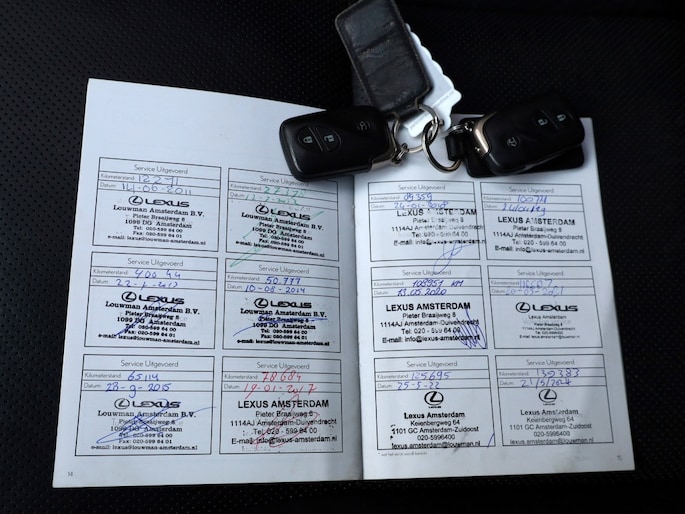 Service Uitgevoerd
Kilometerstand 12271
Datum 14-06-2011
LEXUS
Louwman Amsterdam B.V.
Pieter Braaijweg 8
1099 DG Amsterdam
Tel: 020-599 64 00
Fax: 020-599 64 01
e-mail: lexus@louwman-amsterdam.nl
Service Uitgevoerd
Kilometerstand
Datum
LEXUS
Louwman Amsterdam B.V.
Pieter Braaijweg 8
1099 DG Amsterdam
Tel: 020-599 64 00
Fax: 020-599 64 01
e-mail: lexus@louwman-amsterdam.nl
Service Uitgevoerd
Kilometerstand 400 44
Datum
LEXUS
Louwman Amsterdam B.V.
Pieter Braaijweg 8
1099 DG Amsterdam
Tel: 020-599 64 00
Fax: 020-599 64 01
e-mail: lexus@louwman-amsterdam.nl
Service Uitgevoerd
Kilometerstand 50.777
Datum 10-08-2014
LEXUS
Louwman Amsterdam B.V.
Pieter Braaijweg 8
1099 DG Amsterdam
Tel: 020-599 64 00
Fax: 020-599 64 01
e-mail: lexus@louwman-amsterdam.nl
Service Uitgevoerd
Kilometerstand 65114
Datum 28-9-2015
LEXUS
Louwman Amsterdam B.V.
Pieter Braaijweg 8
1099 DG Amsterdam
Tel: 020-599 64 00
Fax: 020-599 64 01
e-mail: lexus@louwman-amsterdam.nl
Service Uitgevoerd
Kilometerstand 78684
Datum 19-01-2017
LEXUS AMSTERDAM
Pieter Braaijweg 8
1114AJ Amsterdam-Duivendrecht
Tel: 020 - 599 64 00
E-mail: info@lexus-amsterdam.nl
14
Service Uitgevoerd
Kilometerstand 89359
Datum 24-01-2018
LEXUS AMSTERDAM
Pieter Braaijweg 8
1114AJ Amsterdam-Duivendrecht
Tel: 020 - 599 64 00
E-mail: info@lexus-amsterdam.nl
Service Uitgevoerd
Kilometerstand
Datum
LEXUS AMSTERDAM
Pieter Braaijweg 8
1114AJ Amsterdam-Duivendrecht
Tel: 020 - 599 64 00
E-mail: info@lexus-amsterdam.nl
Service Uitgevoerd
Kilometerstand 108951 KM
Datum 13.05.2020
LEXUS AMSTERDAM
Pieter Braaijweg 8
1114AJ Amsterdam-Duivendrecht
Tel: 020 - 599 64 00
E-mail: info@lexus-amsterdam.nl
Service Uitgevoerd
Kilometerstand
Datum
LEXUS
Lexus Amsterdam
Pieter Braaijweg 8
Service Uitgevoerd
Kilometerstand 125695
Datum 25-5-22
LEXUS
Lexus Amsterdam
Keienbergweg 64
1101 GC Amsterdam-Zuidoost
020-5996400
lexus.amsterdam@louwman.nl
Service Uitgevoerd
Kilometerstand 139383
Datum 21/5/2024
LEXUS
Lexus Amsterdam
Keienbergweg 64
1101 GC Amsterdam-Zuidoost
020-5996400
lexus.amsterdam@louwman.nl
15